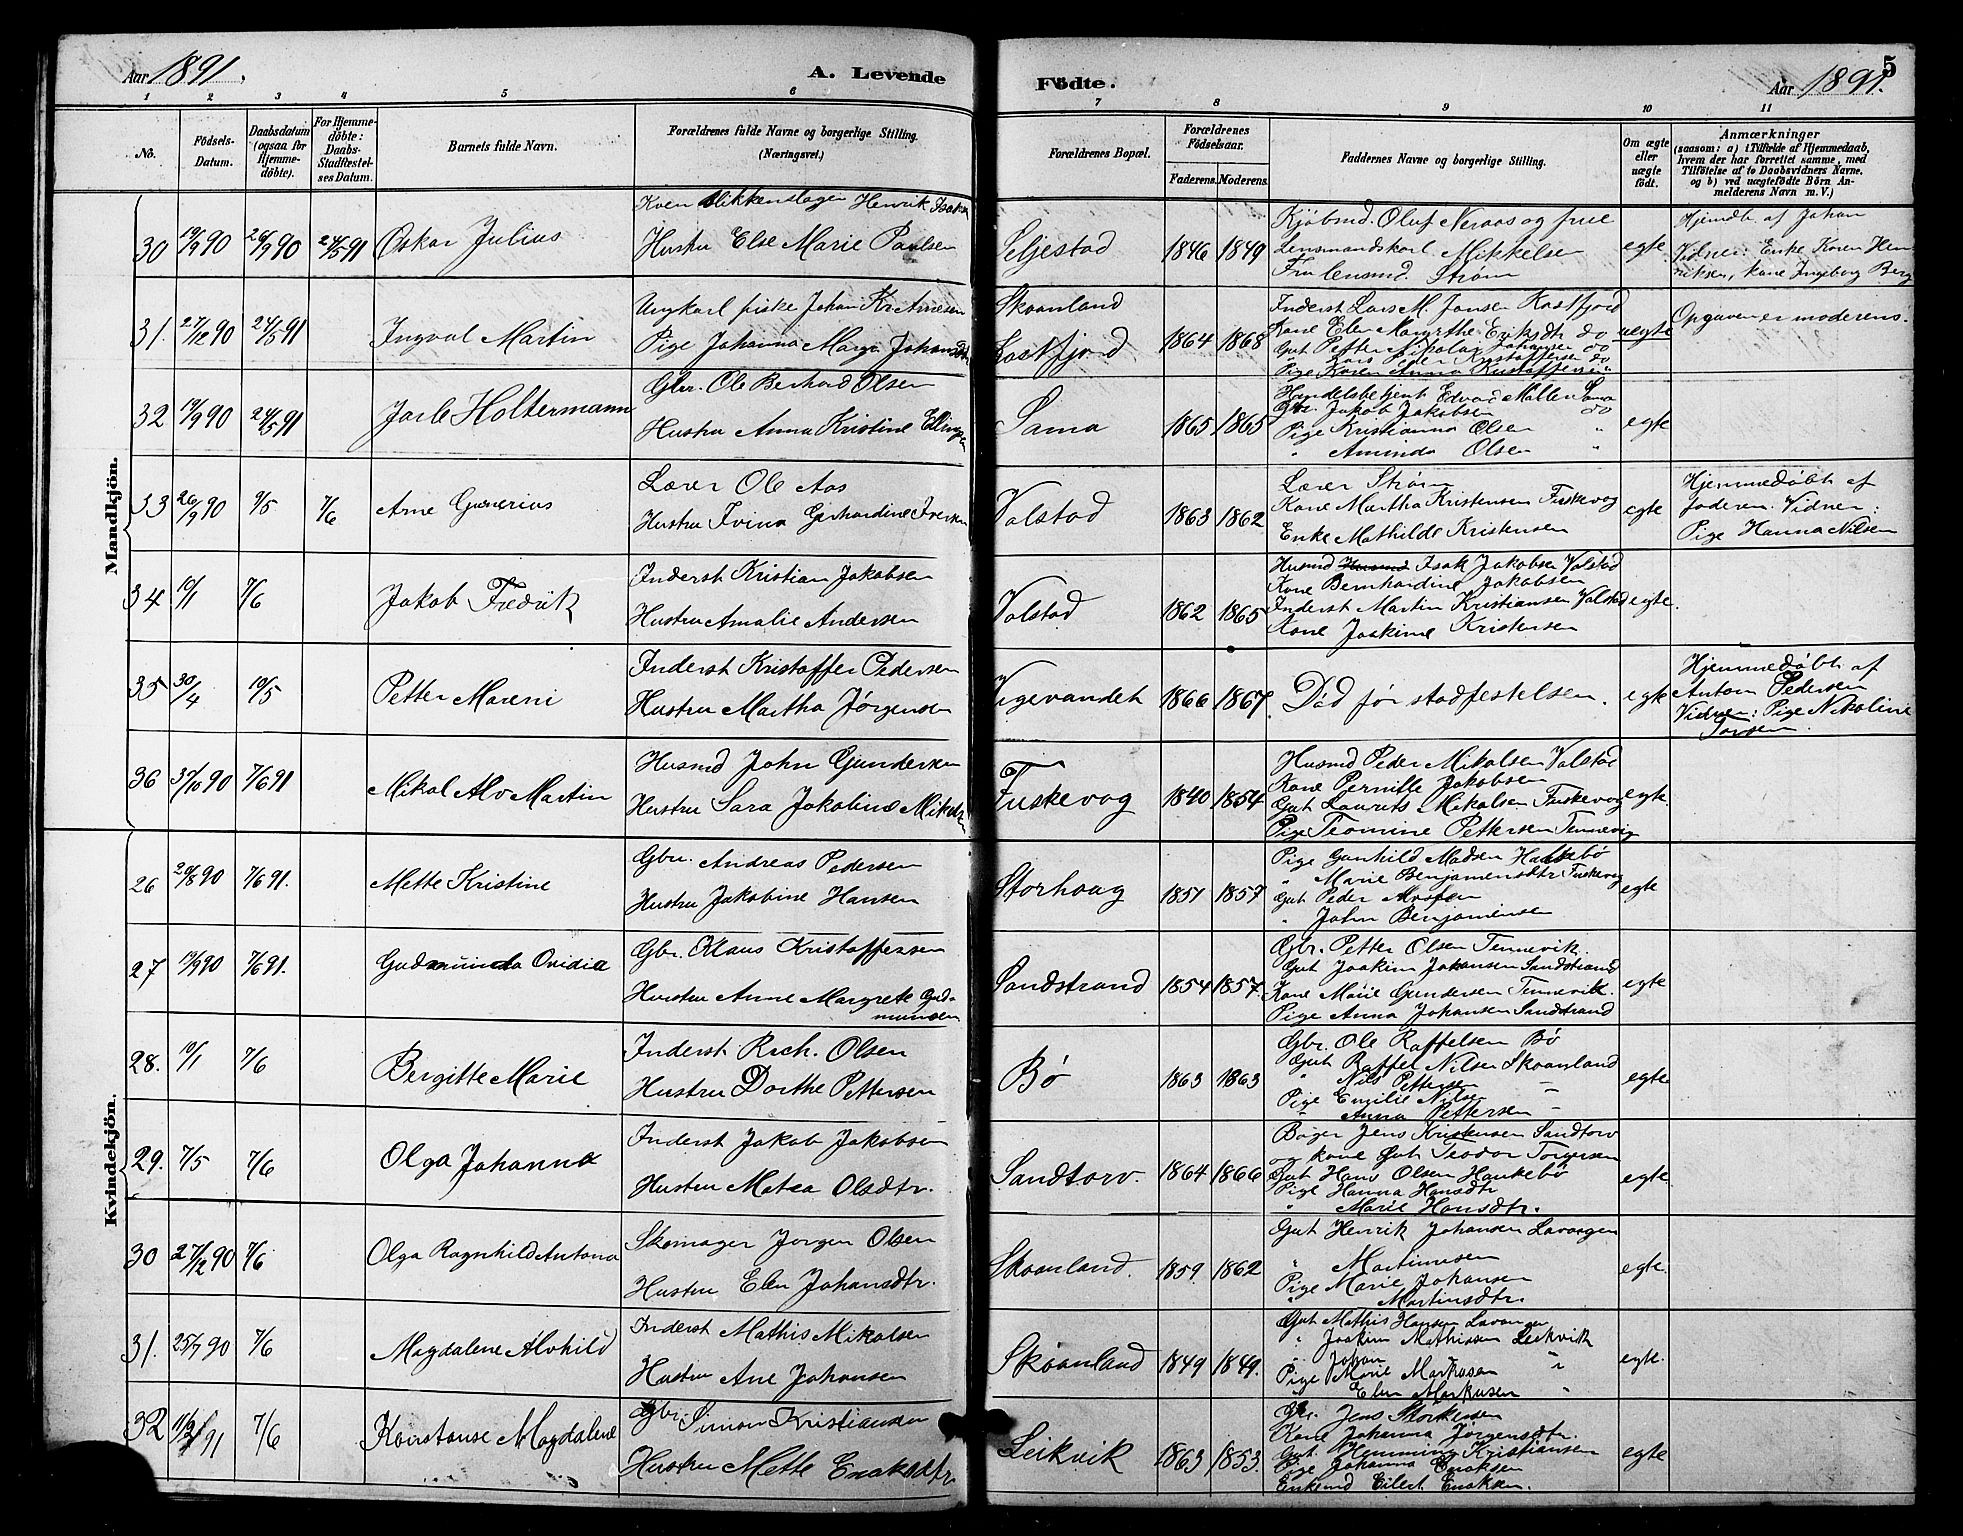 Aar 1891.
A. Levende
Fødte.
Aar 1891.
5
1 2 3 4 5 6 7 8 9 10 11
No.
Fødsels-Datum.
Daabsdatum (ogsaa for Hjemmedöbte).
For Hjemmedöbte: Daabs-Stadfæstelses Datum.
Barnets fulde Navn.
Forældrenes fulde Navne og borgerlige Stilling. (Næringsvei.)
Forældrenes Bopæl.
Forældrenes Fødselsaar.
Faderens. Moderens.
Faddernes Navne og borgerlige Stilling.
Om ægte eller uægte født.
Anmærkninger
(saasom: a) i Tilfælde af Hjemmedaab, hvem der har forrettet samme, med Tilföielse af to Daabsvidners Navne, og b) ved uægtefödte Börn Anmelderens Navn m. V.)
Mandkjön.
30 19/9 90 29/9 90 24/5 91 Oskar Julius
Kven Blikkenslager Henrik Isaksen
Hustru Else Marie Paulsen
Seljestad 1846 1849
Kjøbmd. Oluf Neraas og frue
Lensmandskarl Mikkelsen
Fru lensmd. Strøm
egte
Hjemdb. af Johan
Vidner: Enke Karen Henriksen, kone Ingeborg Berg
31. 27/12 90 24/5 91 Ingval Martin
Ungkarl fisker Johan Kristinesen
Pige Johanna Marga Johansdtr
Skaanland
Kostfjord 1864 1868
Inderst Lars M. Jonsen Kostfjord
Kone Elen Margrethe Eriksdtr do
Gut Petter Nikolai Johansen do
Lars Peder Kristoffersen do
Pige Karen Anna Kristoffersen "
uegte
Opgaven er moderens.
32 19/9 90 24/5 91 Jarle Holtermann
Gbr. Ole Berhard Olsen
Hustru Anna Kristine Ellingsen
Sama 1865 1865
Handelsbetjent Edvard Møller Sama
Gbr. Jakob Jakobsen do
Pige Kristianna Olsen "
" Aminda Olsen "
egte
33 26/9 90 9/5 7/6 Arne Gunerius
Lærer Ole Aas
Hustru Ivina Gerhardine Iversen
Volstad 1863 1862
Lærer Strøm
Kone Martha Kristensen Fuskevog
Enke Mathilde Kristensen
egte
Hjemmedøbt af
faderen. Vidner:
Pige Hanna Nilsen
34 10/1 7/6 Jakob Fredrik
Inderst Kristian Jakobsen
Hustru Amalie Andersen
Volstad 1862 1865
Husmd Isak Jakobsen Volstad
Kone Bernhardine Jakobsen
Inderst Martin Kristiansen Volstad
Kone Joakime Kristensen
egte.
35 30/4 10/5 Petter Mareni
Inderst Kristoffer Pedersen
Hustru Martha Jørgensen
Vigevandet 1866 1867.
Død før stadfestelsen.
egte
Hjemmedøbt af
Anton Pedersen
Vidner: Pige Nikoline
36 31/10 90 7/6 91 Mikal Alv Martin
Husmd John Gundersen
Hustru Sara Jakobine Mikalsen
Fuskevog 1840 1854
Husmd Peder Mikalsen Volstad
Kone Pernille Jakobsen
Gut Laurits Mikalsen Fuskevog
Pige Teomine Pettersen Tennevig
egte.
Kvindekjön.
26 20/8 90 7/6 91. Mette Kristine
Gbr. Andreas Pedersen
Hustru Jakobine Hansen
Storhaag 1851 1857
Pige Gunhild Madsen Haukebø
" Marie Benjaminsdtr Fuskevog
Gut Peder
" John Benjaminsen
egte
27 13/9 90 7/6 91. Gudmunda Ovidia
Gbr. Klaus Kristoffersen
Hustru Anne Margrete Gudmundsen
Sandstrand 1854 1857.
Gbr. Petter Olsen Tennevik.
Gut Joakim Johansen Sandstrand
Kone Marie Gundersen Tennevik.
Pige Anna Johansen Sandstrand
egte
28. 10/1 7/6 Bergitte Marie
Inderst Rich. Olsen
Hustru Dorthe Pettersen
Bø 1863 1863
Gbr. Ole Raffelsen Bø
Gut Raffel Nilsen Skaanland
" Nils Pettersen "
Pige Emilie Nilsen
" Anna Pettersen "
egte
29. 7/5 7/6 Olga Johanna
Inderst Jakob Jakobsen
Hustru Matea Olsdtr.
Sandtorv. 1864 1866
Bager Jens Kristensen Sandtorv
og kone Gut Teodor Torgersen
Gut Hans Olsen Haukebø
Pige Hanna Hansdtr
" Marie Hansdtr.
egte.
30 27/12 90 7/6 Olga Ragnhild Antona
Skomager Jørgen Olsen
Hustru Elen Johansdtr.
Skaanland. 1859. 1862
Gut Henrik Johansen Lavangen
" Martinusen
Pige Marie Johansen
" Martinsdtr.
egte.
31. 25/7 90 7/6 Magdalene Alvhild
Inderst Mathis Mikalsen
Hustru Ane Johansen
Skaanland 1849 1849.
Gut Mathis Hansen Lavangen
" Joakim Mathissen Leikvik
" Johan "
Pige Marie Markusen
" Elen Markusen "
egte.
32 11/2 91 7/6 Konstanse Magdalene
Gbr. Simon Kristiansen
Hustru Mette Enoksdtr
Leikvik 1863 1853.
Gbr. Jens Storkersen
Kone Johanna Jørgensdtr.
Gut Hemming Kristiansen
Pige Johanna Enoksen
Enkemd Eilert Enoksen.
egte